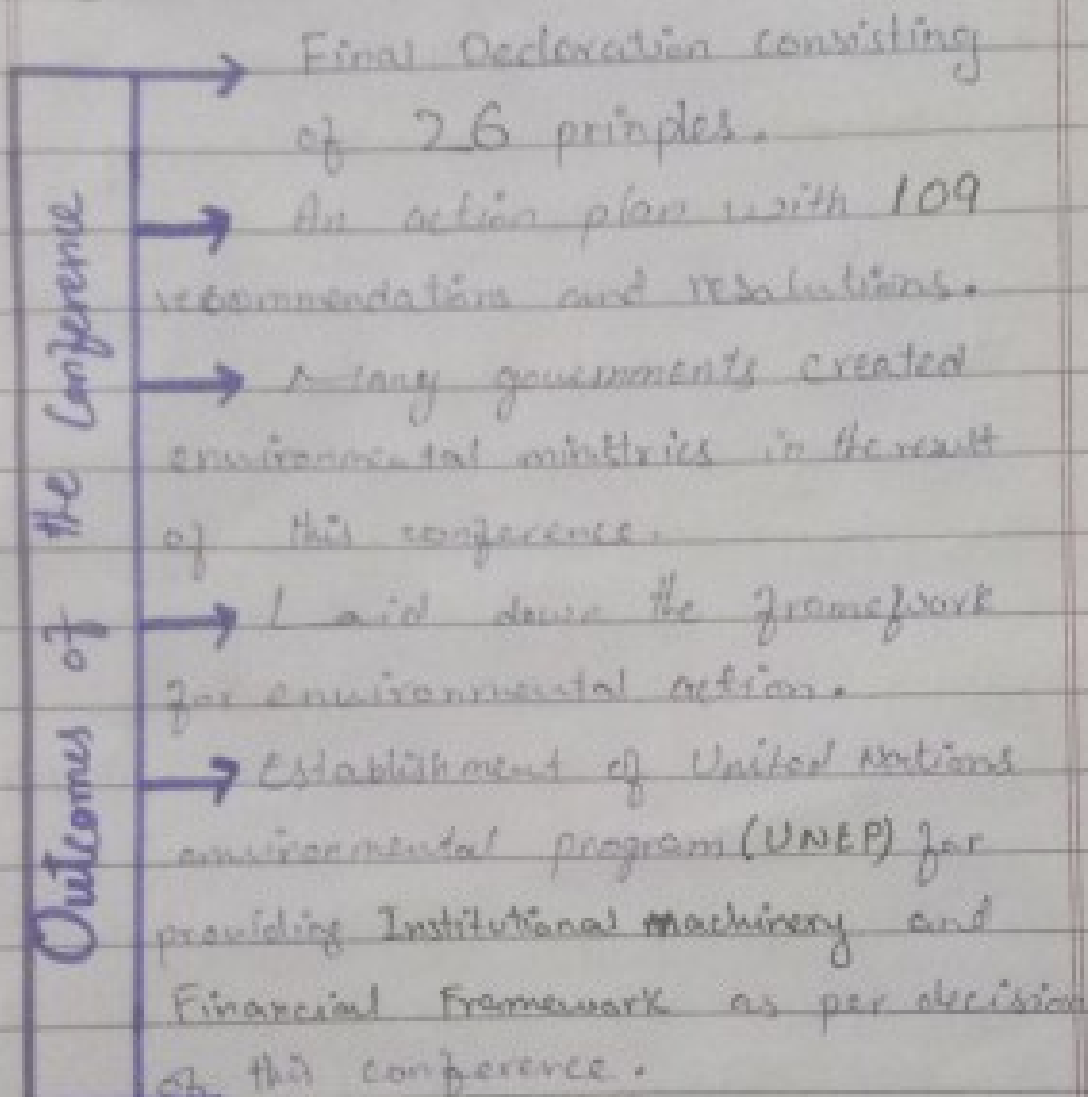 Outcomes of the Conference
Final Declaration consisting
of 26 prinples.
An action plan with 109
recommendations and resolutions.
Many governments created
environmental ministries in the result
of this conference.
Laid down the framework
for environmental action.
Establishment of United Nations
environmental program (UNEP) for
providing Institutional machinery and
Financial Framework as per decision
of this conference.